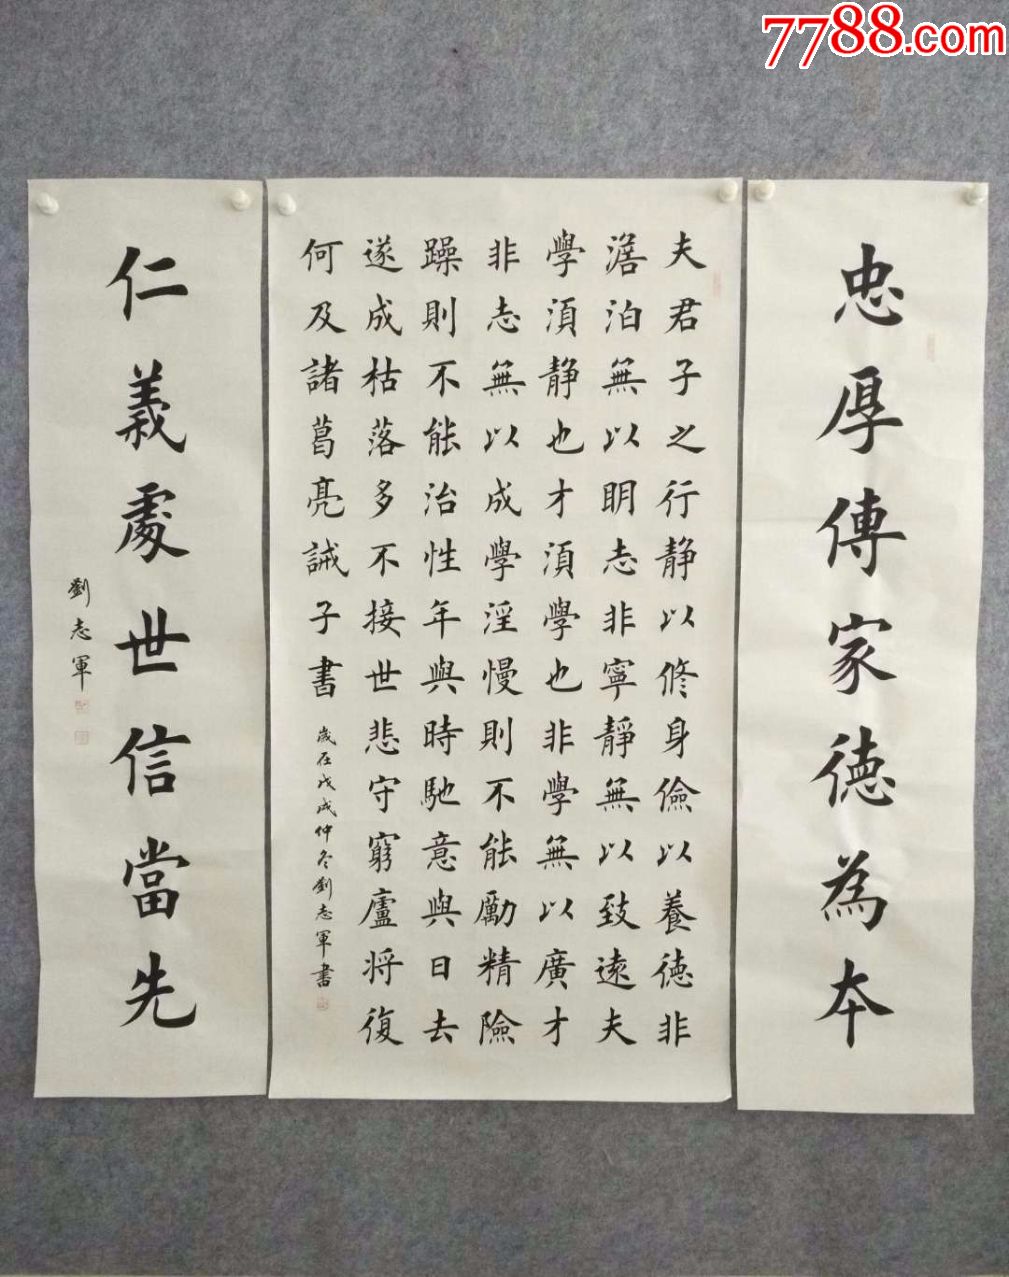 7788.com
忠厚傳家德為本
夫君子之行静以修身儉以養德非
澹泊無以明志非寧靜無以致遠夫
學須静也才須學也非學無以廣才
非志無以成學淫慢則不能勵精險
躁則不能治性年與時馳意與日去
遂成枯落多不接世悲守窮廬将復
何及諸葛亮誡子書
歲在戊戌仲冬劉志軍書
仁義處世信當先
劉志軍